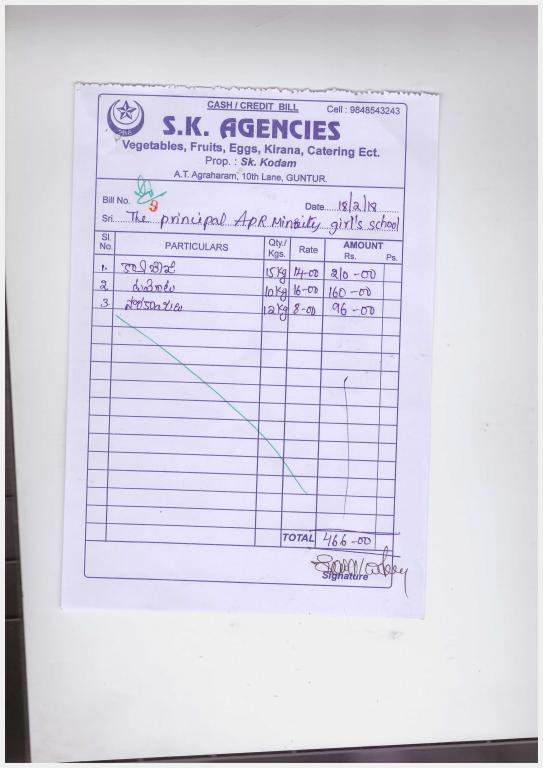 CASH / CREDIT BILL
Cell : 9848543243
S.K. AGENCIES
Vegetables, Fruits, Eggs, Kirana, Catering Ect.
Prop. : Sk. Kodam
A.T. Agraharam, 10th Lane, GUNTUR.
Bill No. 9 Date 18/2/18
Sri The principal APR Minority girl's school
Sl. No. PARTICULARS Qty./ Kgs. Rate AMOUNT Rs. Ps.
1. 15 kg 14-00 210-00
2 10 kg 16-00 160-00
3 12 kg 8-00 96-00
TOTAL 466-00
Signature